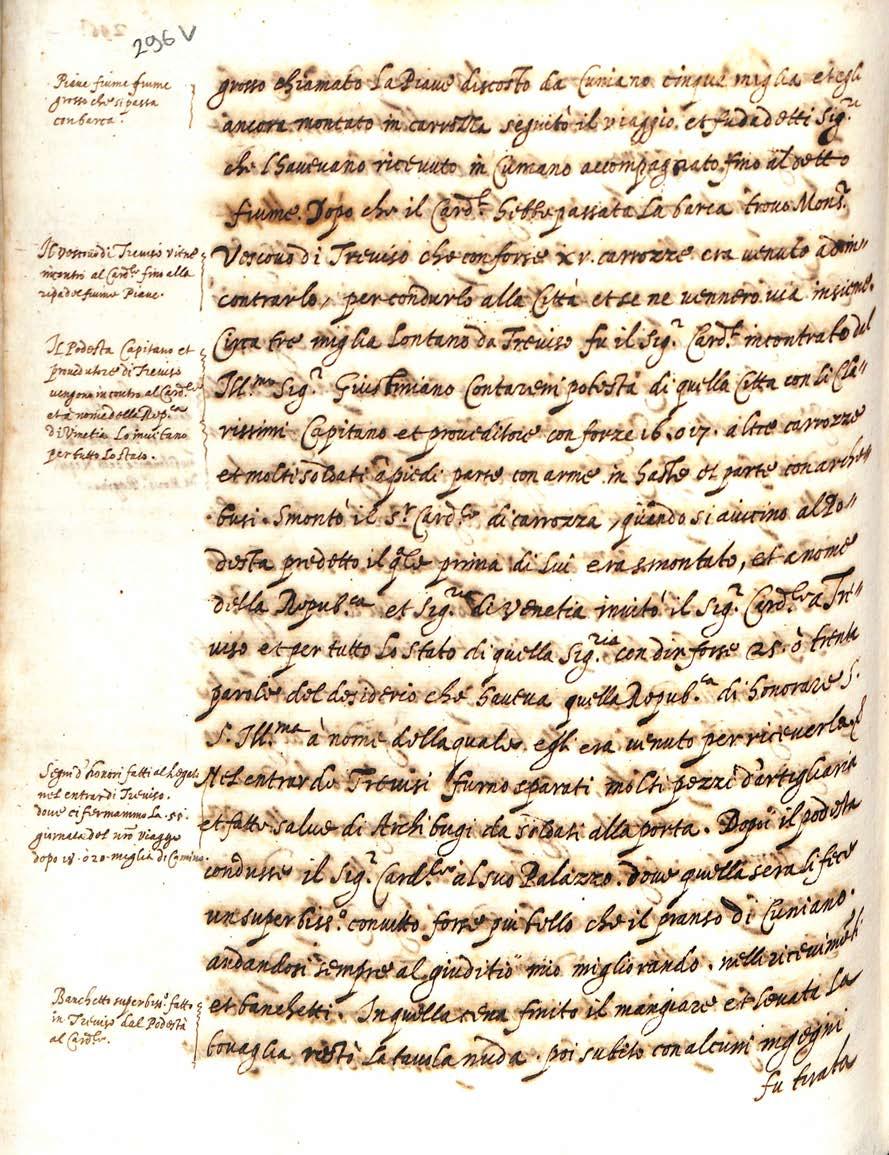 296 V
Piave fiume fiume
grosso che si passa
con barca.
grosso chiamato La Piave discosto da Cuniano cinque miglia et egli
ancora montato in carrozza seguitò il viaggio. et fu da detti Sig.ri
che l'havevano ricevuto in Cuniano accompagnato fino al detto
fiume. Dopo che il Card.le hebbe passata La barca trovò Mons.r
Vescovo di Treviso che con forse xv. carrozze era venuto ad in"
contrarlo, per condurlo alla Città et se ne vennero via insieme.
Il vescovo di Treviso viene
incontri al Card.le fino alla
ripa del fiume Piave.
Circa tre miglia Lontano da Treviso fu il Sig.r Card.le incontrato dal
Ill.mo Sig.r Giustiniano Contareni potestà di quella Citta con li Cla"
rissimi Capitano et proveditore con forze 16. o 17. altre carrozze
et molti soldati à piedi parte con arme in haste et parte con arche"
busi. Smontò il S.r Card.le di carrozza, quando si avicino al Po"
desta predetto il q.le prima di lui era smontato, et a nome
della Repub.ca et Sig.ria di Venetia invitò il Sig.r Card.le a Tre"
viso et per tutto Lo stato di quella Sig.ria con dir forse 25. ò trenta
parole del desiderio che haveva quella Repub.ca di honorare S.
S. Ill.ma à nome della quale egli era venuto per riceverla.
Il Podesta Capitano et
proveditore di Treviso
vengono incontro al Card.le
et à nome della Rep.ca
di Venetia Lo invitano
per tutto Lo stato.
Nel entrar de Trevisi furno sparati molti pezzi d'artigliaria
et fatte salve di Archibugi da soldati alla porta. Dopoi il podesta
condusse il Sig.r Card.le al suo Palazzo. dove quella sera li fece
un superbiss.o convitto forse più bello che il pranso di Cuniano.
andandosi sempre al giuditio mio migliorando. nelli ricevimenti
et banchetti. In quella cena finito il mangiare et levata La
tovaglia restò La tavola nuda. poi subito con alcuni ingegni
fu tirata
Segni d'honori fatti al Legato
nel entrar di Treviso.
dove ci fermammo La 55.
giornata del nro viaggo
dopo 18. ò 20. miglia di Camino.
Banchetto superbiss.o fatto
in Treviso dal Podestà
al Card.le.